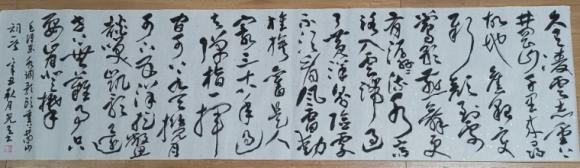 久有凌云志重上
井冈山千里来寻
故地旧貌变
新颜到处
莺歌燕舞更
有潺潺流水高
路入云端过
了黄洋界险处
不须看风雷动
旌旗奋是人
寰三十八年过
去弹指一挥
间可上九天揽月
可下五洋捉鳖
谈笑凯歌还
世上无难事只
要肯登攀
毛泽东水调歌头重上井冈山
词一首 辛丑秋月